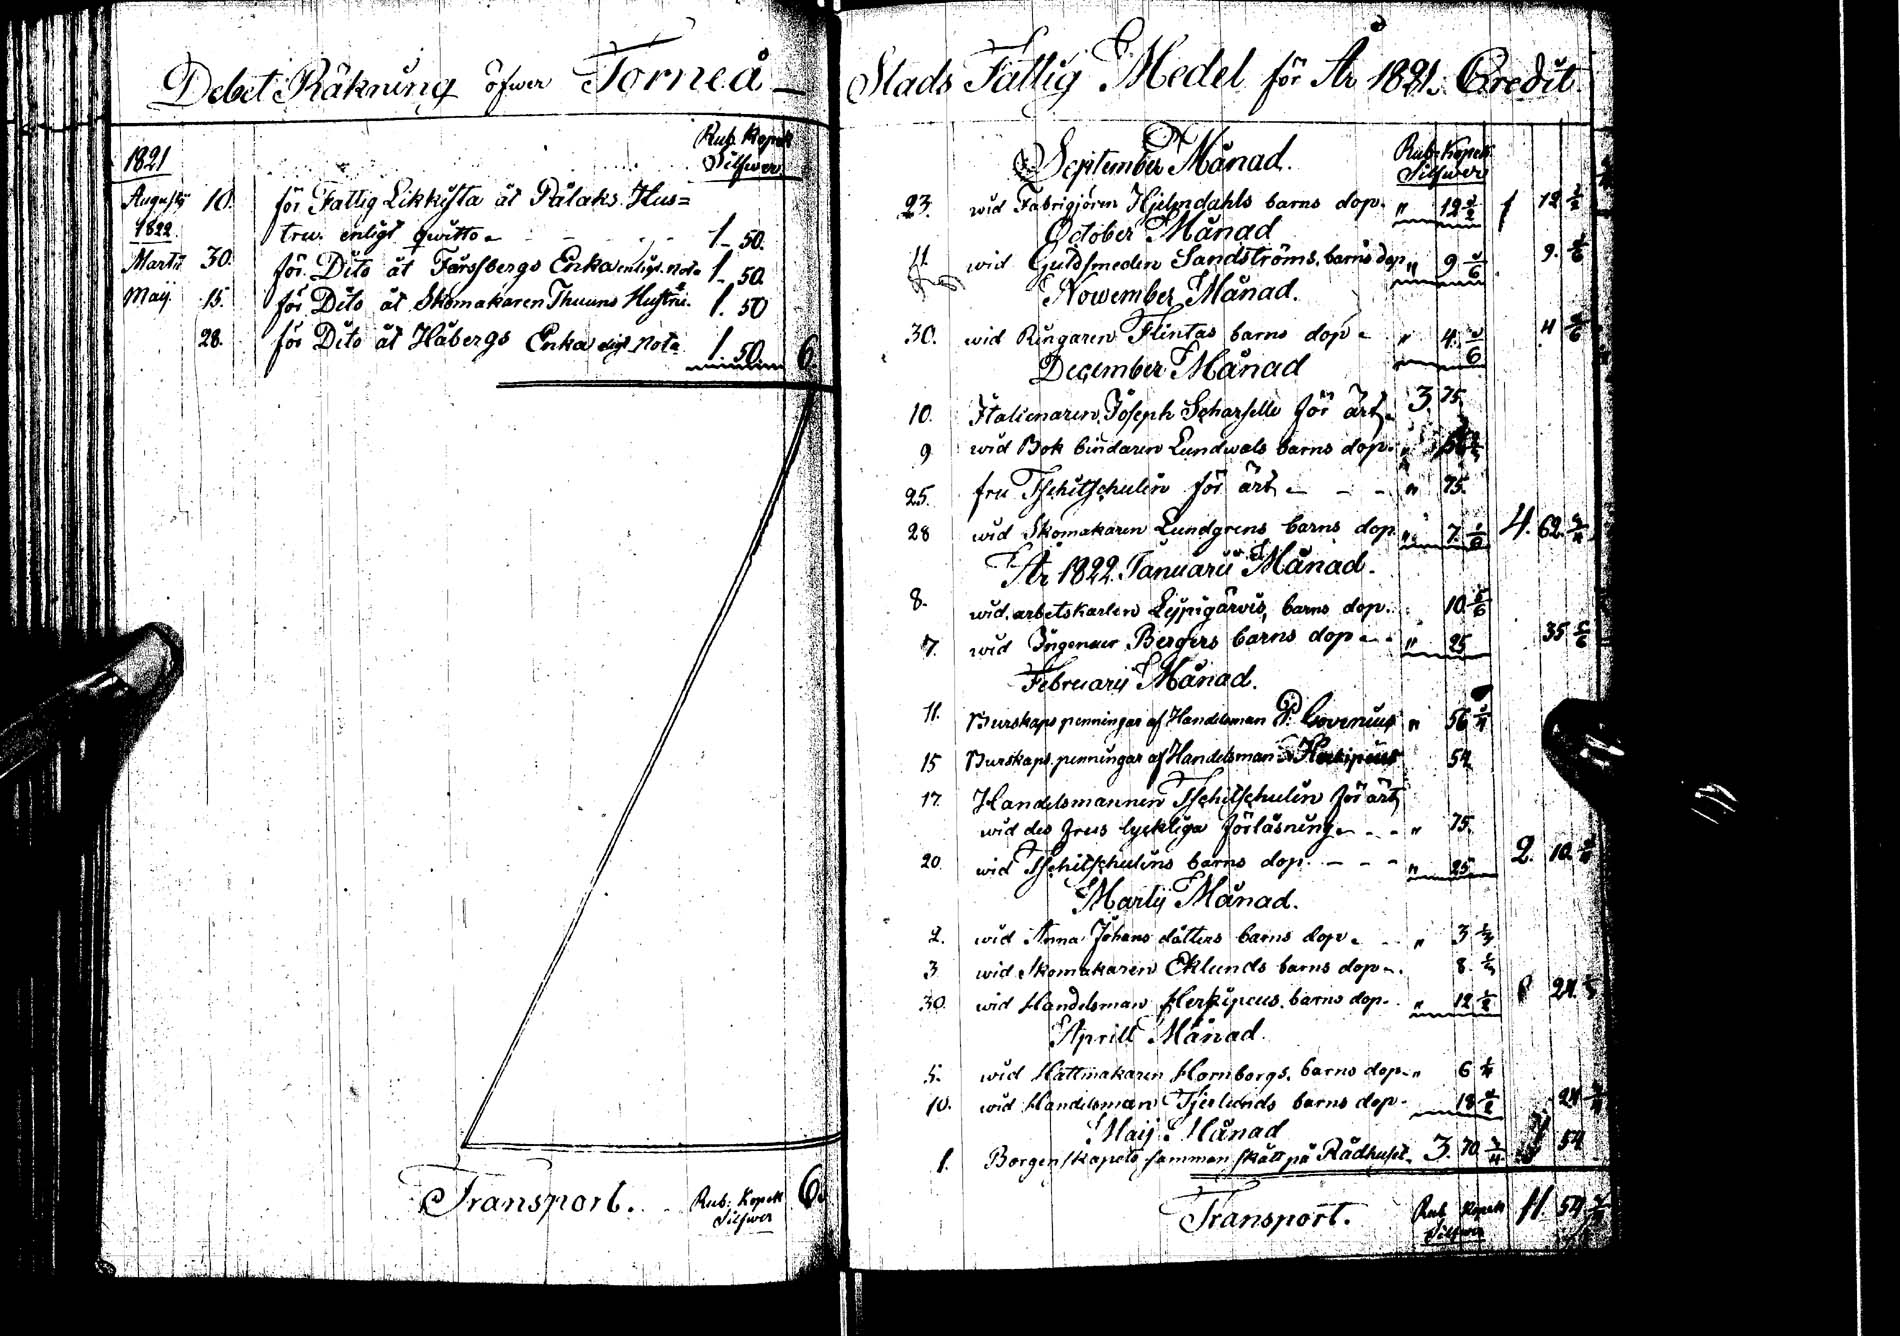 Debet Räkning öfwer Torneå
1821
Rub. Kopek
Silfwer
Augusty 10. för Fattig Likkista åt Pålaks Hus=
1822
tru enligt qwitto 1. 50.
Martii 30. för Dito åt Forssbergs Enka enligt Nota 1. 50.
Maij 15. för Dito åt Skomakaren Thuuns Hustru. 1. 50
28. för Dito åt Håbergs Enka Nota 1. 50. 6.
Transport. Rub. Kopek 6.
Silfwer
Stads Fattig Medel för År 1821. Credit
September Månad. Rub. Kopek
Silfwer
23. wid Fabrigjören Hjelmdahls barns dop. " 12 1/2 12 1/2
October Månad
11. wid Guldsmeden Sandströms barns dop " 9 1/6 9. 1/6
November Månad.
30. wid Ringaren Flintas barns dop " 4. 1/6 4 1/6
December Månad
10. Italienaren Joseph Scharselle för ärt 3. 75.
9 wid Bok bindaren Lundwals barns dop. "
25. fru Tschitschulin för ärt - - - " 75.
28 wid Skomakaren Lundgrens barns dop " 7. 4. 62.
År 1822. Januarii Månad.
8. wid arbetskarlen barns dop. 10. 5/6
7. wid Ingenaer Bergers barns dop " 25 35 5/6
Februarij Månad.
11. Burskaps penningar af Handelsman Govenius " 56 1/4
15 Burskaps penningar af Handelsman 54
17. Handelsmannen Tschitschulin för ärt
wid des frus lyckliga förlåsning - - " 75.
20. wid Tschitschulins barns dop. - - - " 25 2. 10. 1/4
Martij Månad.
2. wid Anna Johans dotters barns dop " 3 1/3
3 wid Skomakaren Eklunds barns dop 8. 1/3
30. wid Handelsman Herkipeus barns dop. " 12 1/2 24.
Aprill Månad.
5. wid Hattmakaren Hornborgs barns dop " 6 1/4
10. wid Handelsman barns dop. 18 1/2 24
Maij Månad
1. Borgenskapets samman skått på Rådhuset. 3. 70 3/4 54
Transport. Rub Kopek 11. 54
Silfwer